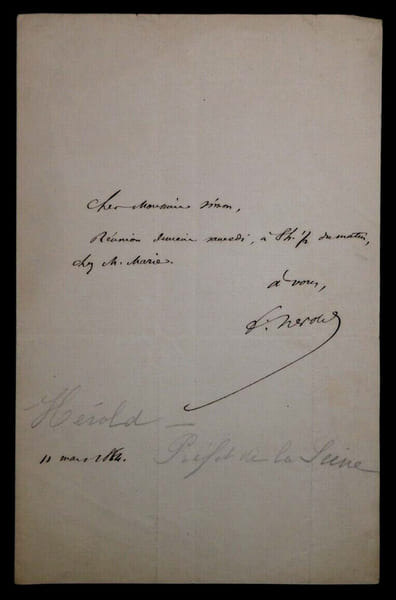 Cher Monsieur Simon,
Réunion demain samedi, à 8h. ½ du matin,
chez M. Marie.
à vous,
F. Herold
Hérold —
11 mars 1864. Préfet de la Seine